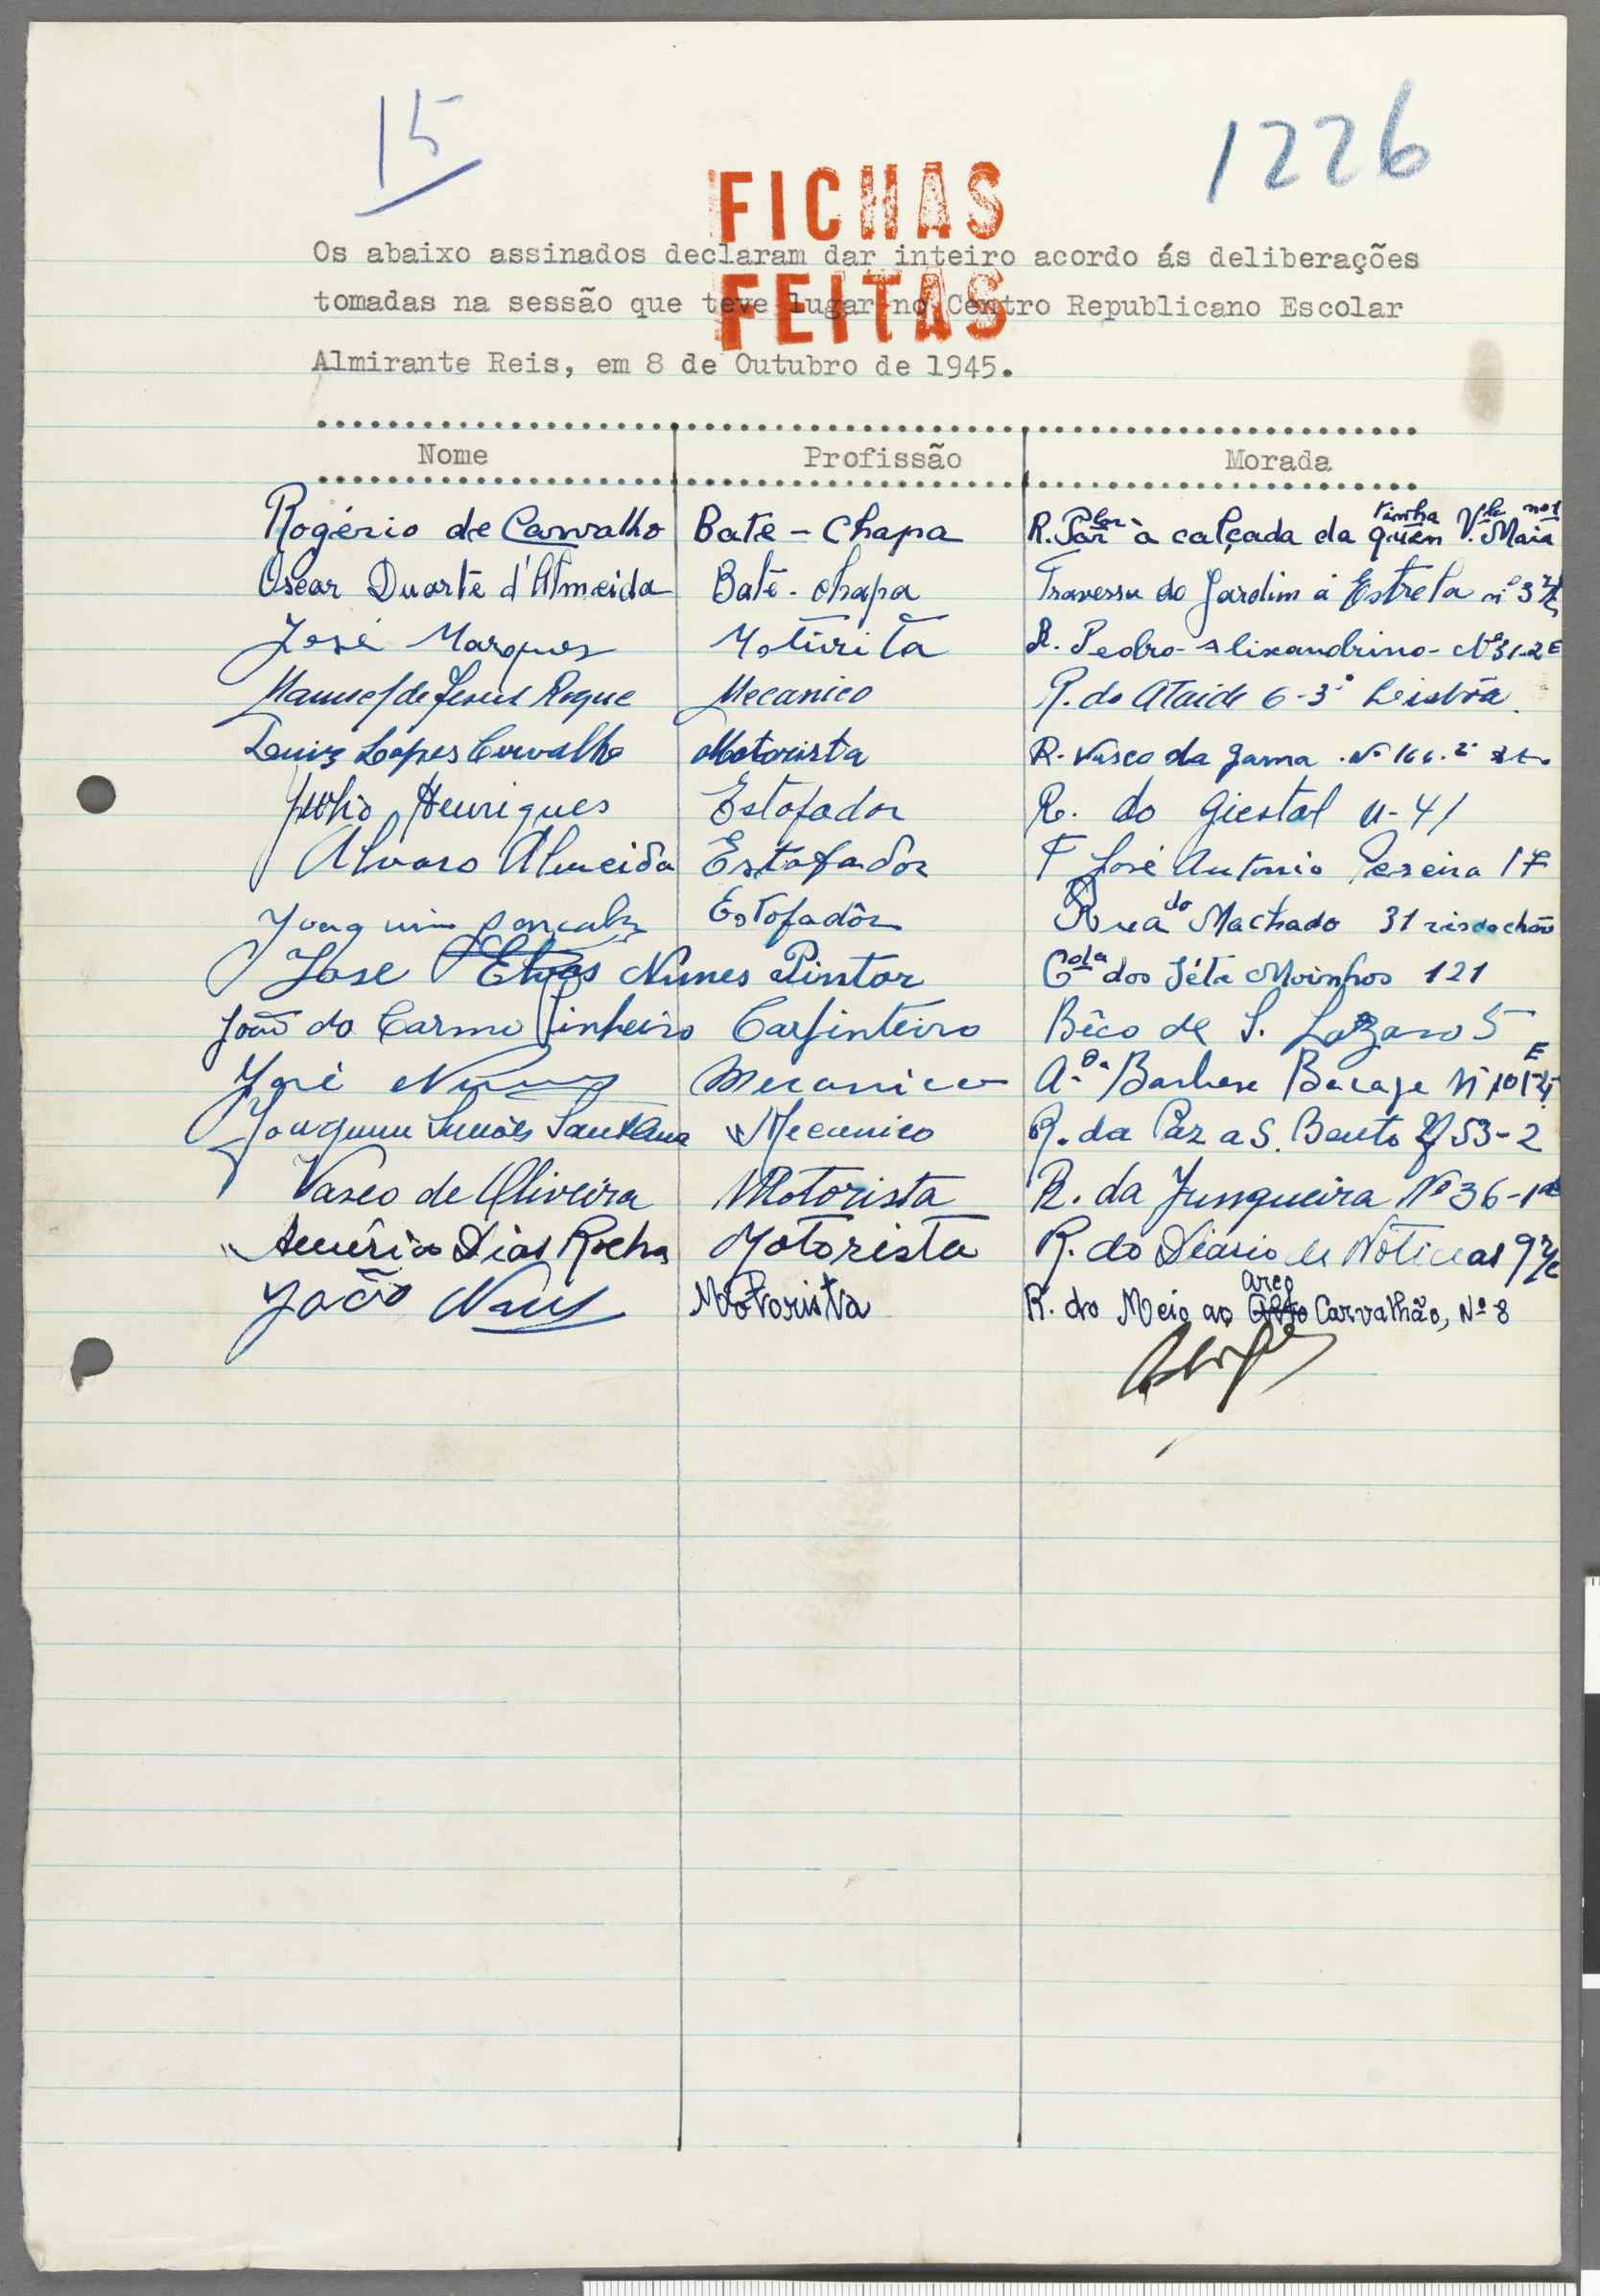 15
1226
FICHAS
FEITAS
Os abaixo assinados declaram dar inteiro acordo ás deliberações
tomadas na sessão que teve lugar no Centro Republicano Escolar
Almirante Reis, em 8 de Outubro de 1945.
Nome Profissão Morada
Rogério de Carvalho Bate - Chapa R. Par à calçada da quin V. Maia
Oscar Duarte d'Almeida Bate - chapa Travessa do Jardim á Estrela nº 3
José Marques Moturita R. Pedro - Alixandrino - Nº 31-2 E
Manuel de Jesus Roque Mecanico R. do Ataide 6-3º Lisbôa
Luiz Lopes Carvalho Motorista R. Vasco da Gama Nº 2º
Julio Henriques Estofador R. do Giestal N-41
Alvaro Almeida Estofador T José Antonio Pereira 17
Joaquim Gonçalves Estofadôr Rua do Machado 31 res do chão
José Nunes Pintor Cçda dos Séte Moinhos 121
João do Carmo Pinheiro Carpinteiro Bêco de S. Lazaro 5
José Nunes Mecanico Barbosa Bucage
Joaquim Simões Santana Mecanico R. da Paz a S. Bento 53-2
Vasco de Oliveira Motorista R. da Junqueira Nº 36-1º
Américo Dias Rocha Motorista R. do Diario de Noticias 9
João Motorista R. do Meio ao arco Carvalhão, Nº 8